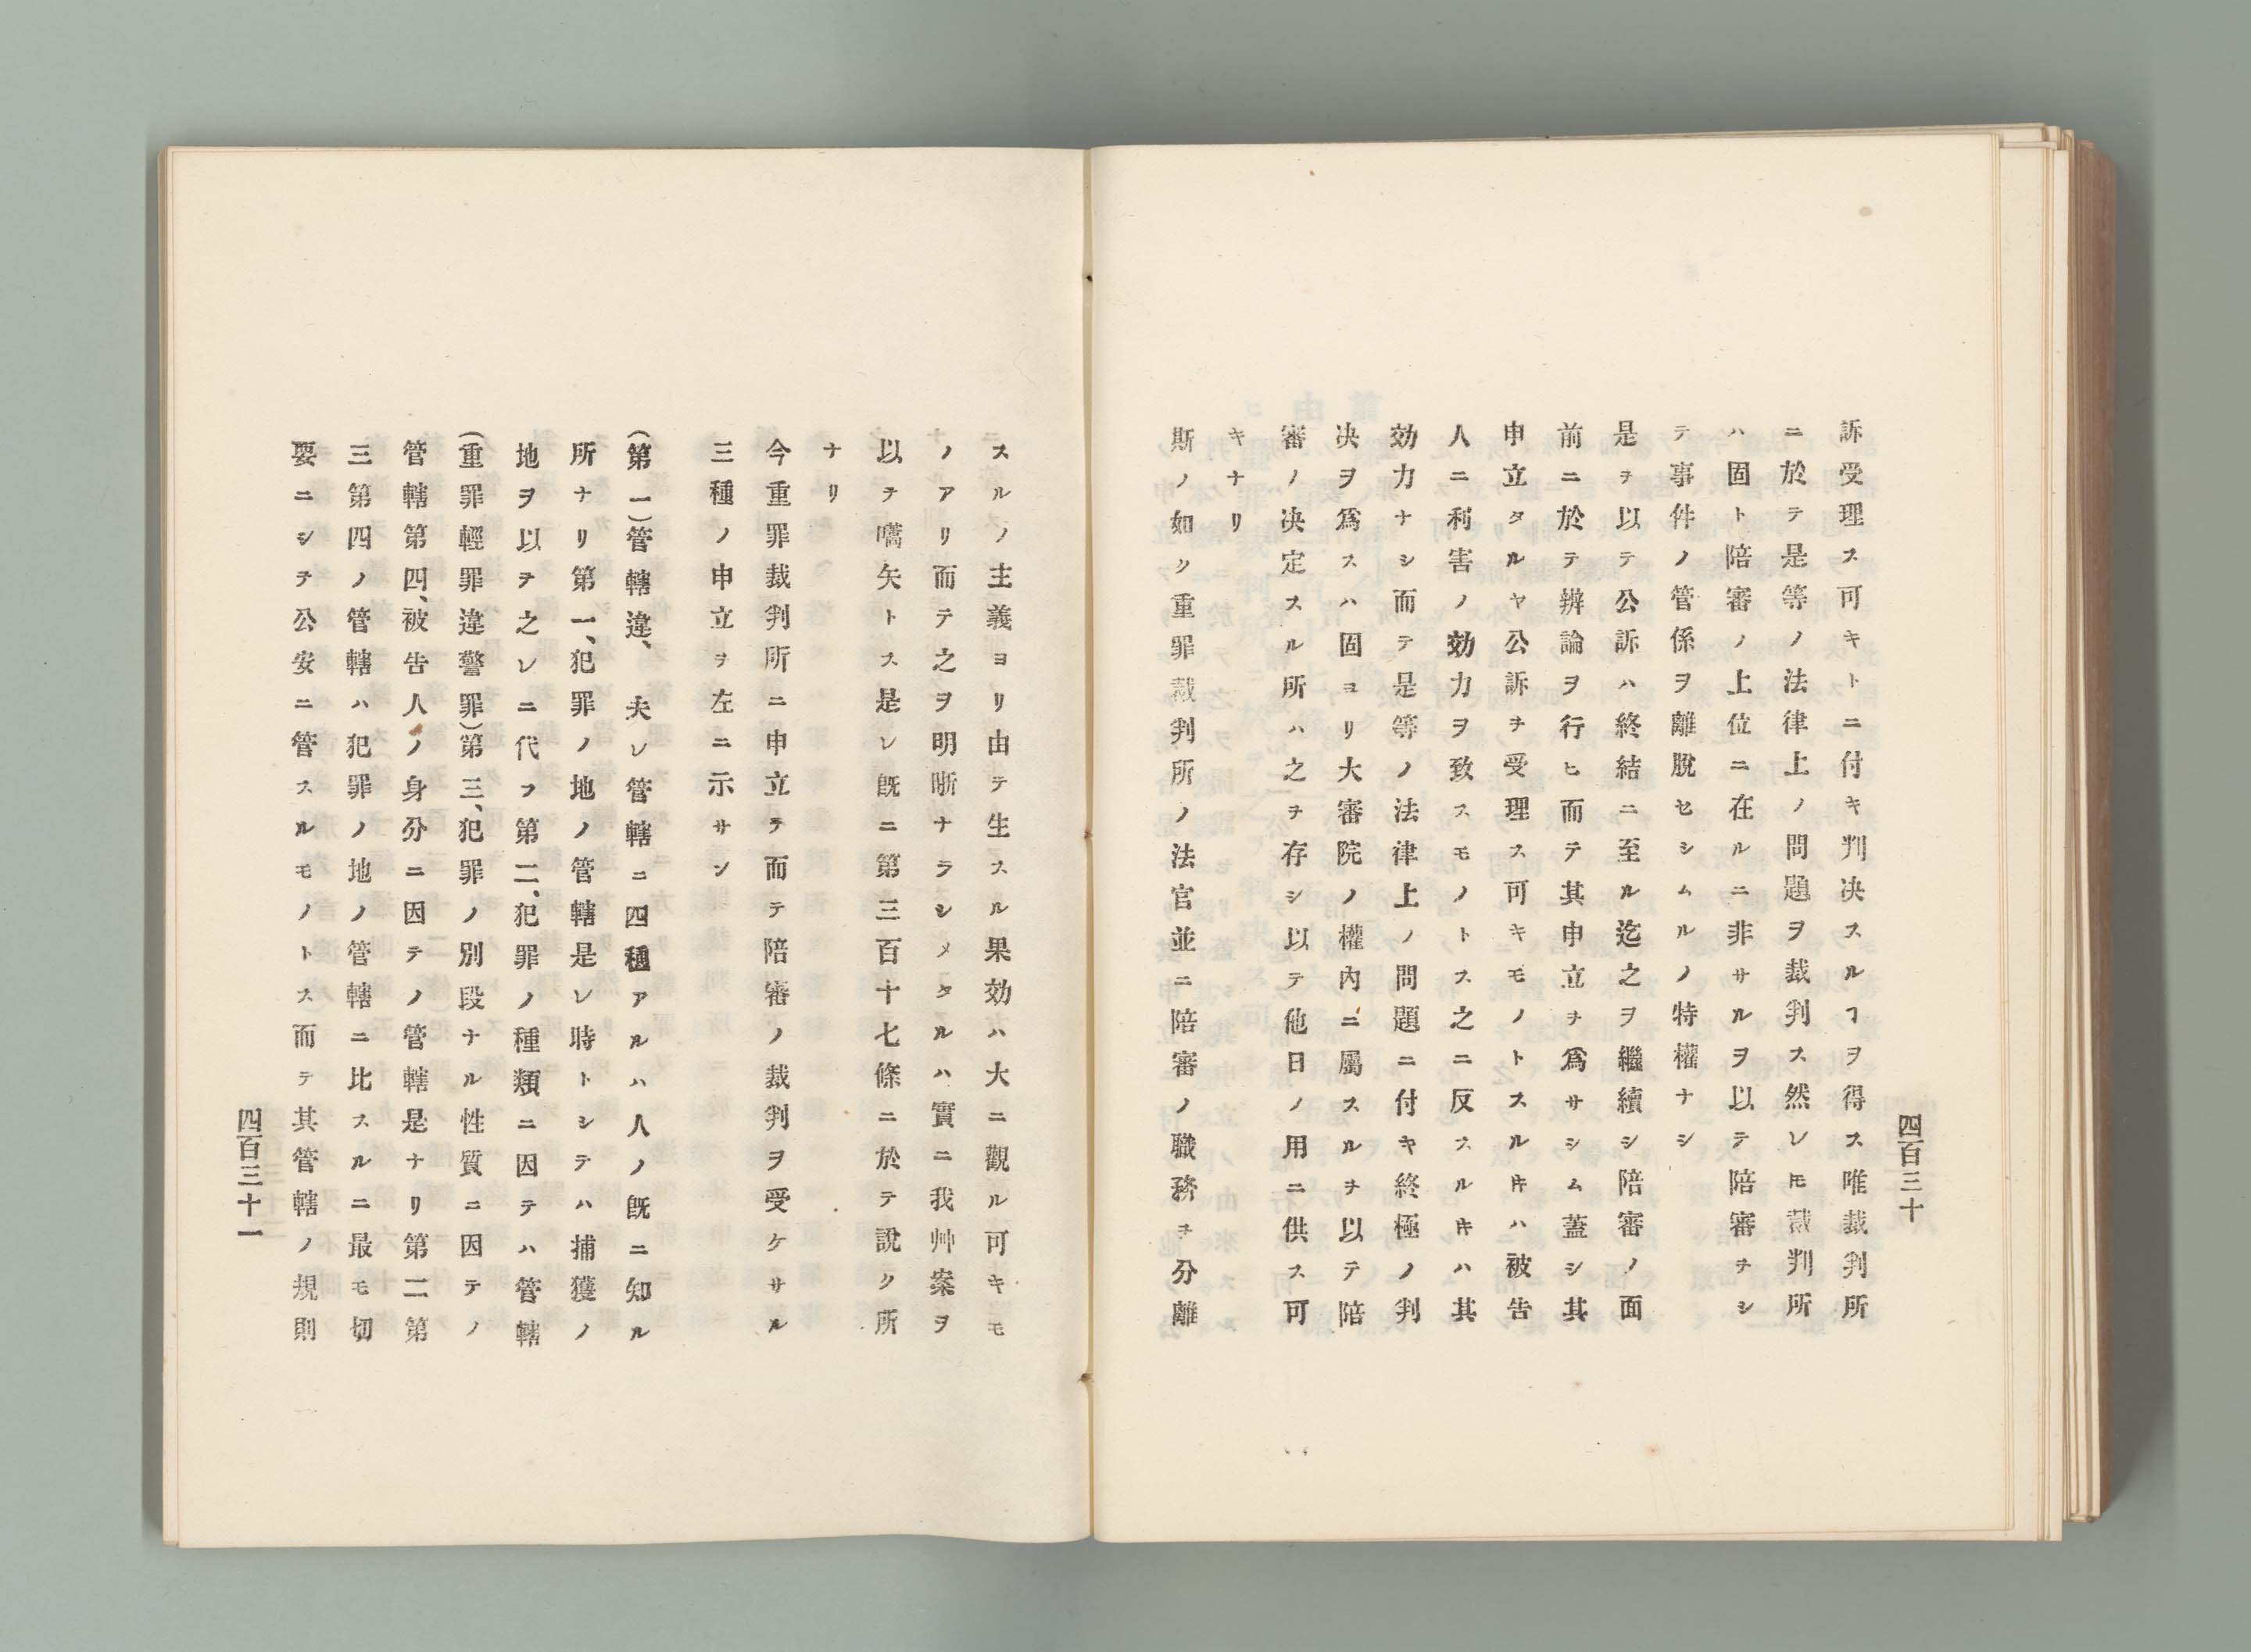 四百三十
訴受理ス可キトニ付キ判决スルヿヲ得ス唯裁判所
ニ於テ是等ノ法律上ノ問題ヲ裁判ス然レ𪜈裁判所
ハ固ト陪審ノ上位ニ在ルニ非サルヲ以テ陪審ヲシ
テ事件ノ管係ヲ離脫セシムルノ特權ナシ
是ヲ以テ公訴ハ終結ニ至ル迄之ヲ繼續シ陪審ノ面
前ニ於テ辨論ヲ行ヒ而テ其申立ヲ爲サシム蓋シ其
申立タルヤ公訴ヲ受理ス可キモノトスル片ハ被告
人ニ利害ノ効力ヲ致スモノトス之ニ反スル片ハ其
効力ナシ而テ是等ノ法律上ノ問題ニ付キ終極ノ判
决ヲ爲スハ固ヨリ大審院ノ權內ニ屬スルヲ以テ陪
審ノ决定スル所ハ之ヲ存シ以テ他日ノ用ニ供ス可
キナリ
斯ノ如ク重罪裁判所ノ法官並ニ陪審ノ職務ヲ分離
スルノ主義ヨリ由テ生スル果効ハ大ニ觀ル可キモ
ノアリ而テ之ヲ明晣ナラシメタルハ實ニ我艸案ヲ
以テ嚆矢トス是レ旣ニ第三百十七條ニ於テ說ク所
ナリ
今重罪裁判所ニ申立テ而テ陪審ノ裁判ヲ受ケサル
三種ノ申立ヲ左ニ示サン
(第一)管轄違、夫レ管轄ニ四種アルハ人ノ旣ニ知ル
所ナリ第一、犯罪ノ地ノ管轄是レ時トシテハ捕獲ノ
地ヲ以テ之レニ代フ第二、犯罪ノ種類ニ因テハ管轄
(重罪輕罪違警罪)第三、犯罪ノ別段ナル性質ニ因テノ
管轄第四、被告人ノ身分ニ因テノ管轄是ナリ第二第
三第四ノ管轄ハ犯罪ノ地ノ管轄ニ比スルニ最モ切
要ニシテ公安ニ管スルモノトス而テ其管轄ノ規則
四百三十一